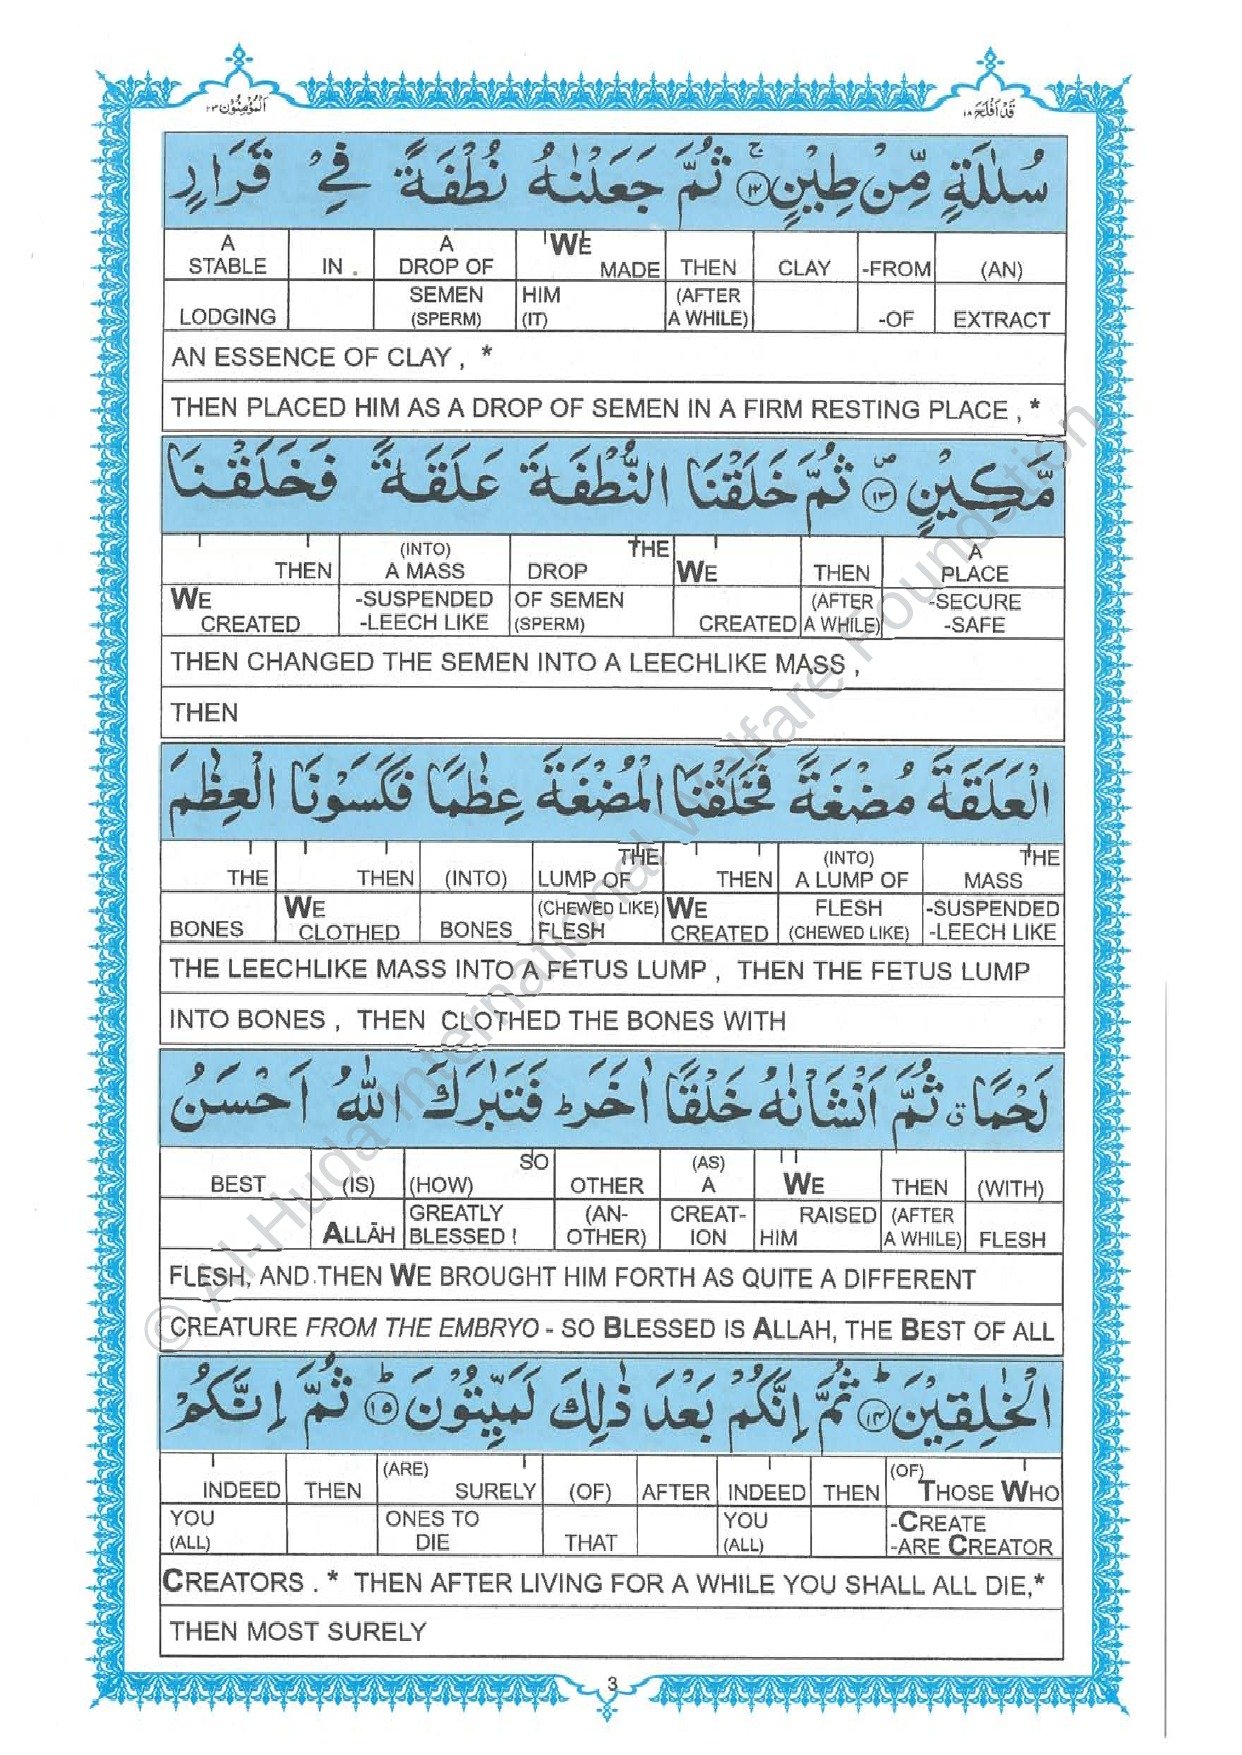 اَلْمُؤْمِنُوْن ٢٣
قَدْ اَفْلَحَ ١٨
سُلٰلَةٍ مِّنْ طِيْنٍ ۚ ﴿١٢﴾ ثُمَّ جَعَلْنٰهُ نُطْفَةً فِيْ قَرَارٍ
A IN . A WE THEN CLAY -FROM (AN)
STABLE DROP OF MADE
LODGING SEMEN HIM (AFTER -OF EXTRACT
(SPERM) (IT) A WHILE)
AN ESSENCE OF CLAY , *
THEN PLACED HIM AS A DROP OF SEMEN IN A FIRM RESTING PLACE , *
مَّكِيْنٍ ۪ ﴿١٣﴾ ثُمَّ خَلَقْنَا النُّطْفَةَ عَلَقَةً فَخَلَقْنَا
THEN (INTO) DROP THE WE THEN A
A MASS PLACE
WE -SUSPENDED OF SEMEN CREATED (AFTER -SECURE
CREATED -LEECH LIKE (SPERM) A WHILE) -SAFE
THEN CHANGED THE SEMEN INTO A LEECHLIKE MASS ,
THEN
الْعَلَقَةَ مُضْغَةً فَخَلَقْنَا الْمُضْغَةَ عِظٰمًا فَكَسَوْنَا الْعِظٰمَ
THE THEN (INTO) THE THEN (INTO) THE
LUMP OF A LUMP OF MASS
BONES WE BONES (CHEWED LIKE) WE FLESH -SUSPENDED
CLOTHED FLESH CREATED (CHEWED LIKE) -LEECH LIKE
THE LEECHLIKE MASS INTO A FETUS LUMP , THEN THE FETUS LUMP
INTO BONES , THEN CLOTHED THE BONES WITH
لَحْمًا ۗ ثُمَّ اَنْشَاْنٰهُ خَلْقًا اٰخَرَ ؕ فَتَبٰرَكَ اللّٰهُ اَحْسَنُ
BEST (IS) SO OTHER (AS) WE THEN (WITH)
(HOW) A
ALLĀH GREATLY (AN- CREAT- RAISED (AFTER FLESH
BLESSED ! OTHER) ION HIM A WHILE)
FLESH, AND THEN WE BROUGHT HIM FORTH AS QUITE A DIFFERENT
CREATURE FROM THE EMBRYO - SO BLESSED IS ALLAH, THE BEST OF ALL
الْخٰلِقِيْنَ ؕ ﴿١٤﴾ ثُمَّ اِنَّكُمْ بَعْدَ ذٰلِكَ لَمَيِّتُوْنَ ؕ ﴿١٥﴾ ثُمَّ اِنَّكُمْ
INDEED THEN (ARE) (OF) AFTER INDEED THEN (OF)
SURELY THOSE WHO
YOU ONES TO THAT YOU -CREATE
(ALL) DIE (ALL) -ARE CREATOR
CREATORS . * THEN AFTER LIVING FOR A WHILE YOU SHALL ALL DIE,*
THEN MOST SURELY
3
© Al-Huda International Welfare Foundation